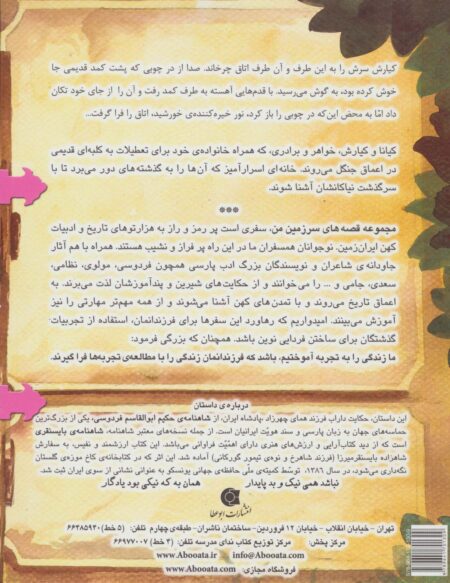 کیارش سرش را به این طرف و آن طرف اتاق چرخاند. صدا از در چوبی که پشت کمد قدیمی جا
خوش کرده بود، به گوش می‌رسید. با قدم‌هایی آهسته به طرف کمد رفت و آن را از جای خود تکان
داد امّا به محض این‌که در چوبی را باز کرد، نور خیره‌کننده‌ی خورشید، اتاق را فرا گرفت...
کیانا و کیارش، خواهر و برادری، که همراه خانواده‌ی خود برای تعطیلات به کلبه‌ای قدیمی
در اعماق جنگل می‌روند. خانه‌ای اسرارآمیز که آن‌ها را به گذشته‌های دور می‌برد تا با
سرگذشت نیاکانشان آشنا شوند.
***
مجموعه قصه‌های سرزمین من، سفری است پر رمز و راز به هزارتوهای تاریخ و ادبیات
کهن ایران‌زمین. نوجوانان همسفران ما در این راه پر فراز و نشیب هستند. همراه با هم آثار
جاودانه‌ی شاعران و نویسندگان بزرگ ادب پارسی همچون فردوسی، مولوی، نظامی،
سعدی، جامی و ... را می‌خوانند و از حکایت‌های شیرین و پندآموزشان لذت می‌برند. به
اعماق تاریخ می‌روند و با تمدن‌های کهن آشنا می‌شوند و از همه مهم‌تر مهارتی را نیز
آموزش می‌بینند. امیدواریم که رهاورد این سفرها برای فرزندانمان، استفاده از تجربیات
گذشتگان برای ساختن فردایی نوین باشد. همچنان که بزرگی فرمود:
ما زندگی را به تجربه آموختیم، باشد که فرزندانمان زندگی را با مطالعه‌ی تجربه‌ها فرا گیرند.
درباره‌ی داستان
این داستان، حکایت داراب فرزند همای چهرزاد، پادشاه ایران، از شاهنامه‌ی حکیم ابوالقاسم فردوسی، یکی از بزرگ‌ترین
حماسه‌های جهان به زبان پارسی و سند هویّت ایرانیان است. از جمله نسخه‌های معتبر شاهنامه، شاهنامه‌ی بایسنقری
است که از دید کتاب‌آرایی و ارزش‌های هنری دارای اهمّیّت فراوانی می‌باشد. این کتاب ارزشمند و نفیس، به سفارش
شاهزاده بایسنقرمیرزا (فرزند شاهرخ و نوه‌ی تیمور گورکانی) آماده شد. این اثر که در کتابخانه‌ی کاخ موزه‌ی گلستان
نگه‌داری می‌شود، در سال ۱۳۸۶، توسّط کمیته‌ی ملّی حافظه‌ی جهانی یونسکو به عنوانی نشانی از سوی ایران ثبت شد.
نباشد همی نیک و بد پایدار همان به که نیکی بود یادگار
انتشارات ابوعطا
تهران - خیابان انقلاب - خیابان ۱۲ فروردین - ساختمان ناشران - طبقه‌ی چهارم تلفن: (۵ خط) ۶۶۴۸۵۹۴۰
مرکز پخش: مرکز توزیع کتاب ندای مدرسه تلفن: (۴ خط) ۶۶۹۷۷۰۰۷
www.Abooata.ir info@Abooata.com
فروشگاه مجازی: www.Abooata.com